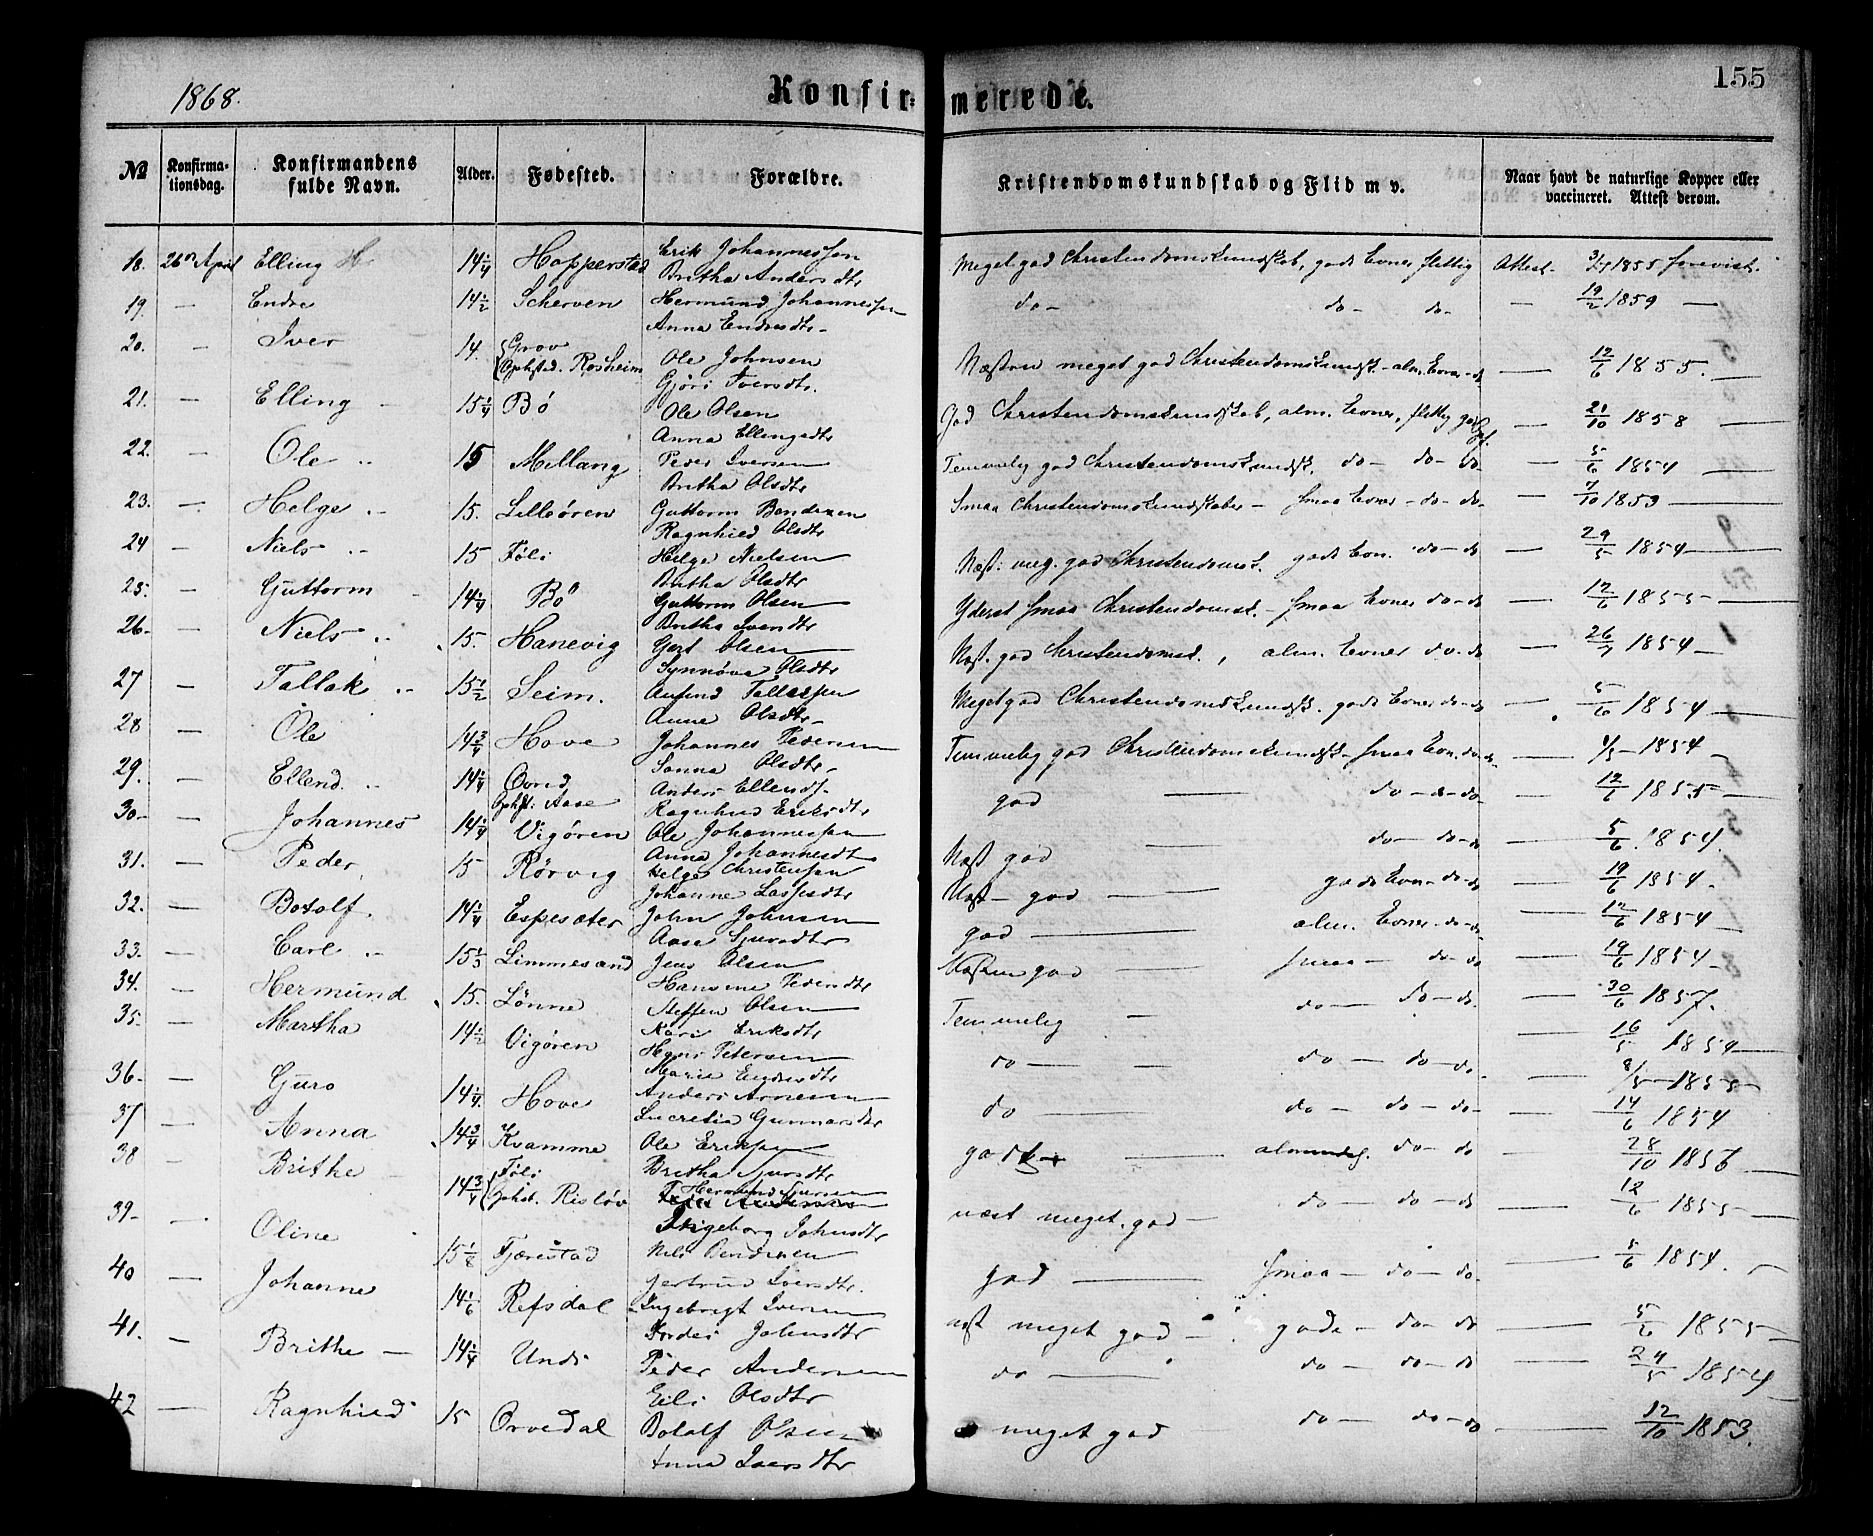 1868.
Konfir=
merede.
155
№
Konfirma-
tionsdag.
Konfirmandens
fulde Navn.
Alder.
Fødested.
Forældre.
Kristendomskundskab og Flid m v.
Naar havt de naturlige Kopper eller
vaccineret. Attest derom.
18. 26 April Elling 14 1/4 Hopperstad Erik Johannessen Meget god Christendomskundskab, gode Evner, flittig Attest. 1855 forevist.
Britha Andersdtr
19. — Endre 14 1/2 Scherven Hermund Johannessen do — do — do — — 19/2 1859 —
Anna Endresdtr
20. — Iver 14. Grov Ole Johnsen Næsten meget god Christendomskundsk. — alm. Evner — do — 12/6 1855. —
Opfsted. Røsheim Gjøri Iversdtr.
21. — Elling 15 1/4 Bö Ole Olsen God Christendomskundskab, alm. Evner, flittig — 21/10 1858 —
Anna Ellingsdtr
22. — Ole 15 Millang Peder Iversen Temmelig god Christendomskundsk. do — do — do — 5/6 1854 —
Britha Olsdtr
23. — Helge 15. Lilleören Guttorm Bendixen Smaa Christendomskundskaber — smaa Evner — do — do — 7/10 1853 —
Ragnhild Olsdtr
24 — Niels 15 Föli Helge Nielsen Næst. meg. god Christendomsk. gode Evn. do — do — 29/5 1854 —
Britha Olsdtr
25. — Guttorm 14 1/4 Bö Guttorm Olsen Yderst smaa Christendomsk. — smaa Evner do — do — 12/6 1855 —
Britha
26. — Niels 15. Hanevig Gert Olsen Næst. god Christendomsk., alm. Evner do — do — 26/7 1854 —
Synnöva Olsdtr
27 — Tallak 15 1/2 Seim. Tallaksen Meget god Christendomskundsk. gode Evner do — do — 5/6 1854 —
Anna Olsdtr
28 — Ole 14 3/4 Hove Johannes Pedersen Temmelig god Christendomskundsk — smaa Evn. do — 1854 —
Sanna Olsdtr
29. — Ellend 14 1/4 Anders Ellends. god — do — do — do — 12/6 1855 —
Aase Ragnhild Eriksdtr
30 — Johannes 14 1/4 Vigören Ole Johannessen Næst god — do — do — do — 5/6 1854.
Anna Johannesdtr
31. — Peder 15 Rörvig Helge Christensen Næst — god — gode Evn — do — do — 19/6 1854 —
Johanne Lassesdtr
32. — Botolf. 14 1/4 Espesæter John Johnsen god — alm. Evner — do — do — 12/6 1854 —
Aase Sjursdtr
33. — Carl 15 1/3 Limmesand Jens Olsen Næsten god — smaa — do — do — 19/6 1854 —
Hansine Pedersdtr
34. — Hermund 15. Lönne Steffen Olsen Temmelig — do — do — do — 30/6 1857.
Kari Eriksdtr
35. — Martha 14 1/2 Vigören Hans Petersen do — — do — do — do — 16/5 1854 —
Marie Endresdtr
36 — Guro 14 1/4 Hove Anders Arnesen do — do — do — do — 8/5 1855 —
Lucretia Gunnarsdtr
37 — Anna 14 3/4 Kvamme Ole Eriksen god — almindel. do — do — 14/6 1854
Britha Sjursdtr
38 — Brithe 14 3/4 Föli Hermund næst meget god — do — do — do — 28/10 1856 —
Opfst. Risløv Ingeborg Johnsdtr
39 — Oline 15 1/8 Fjærestad Nils Bendixen god — smaa — do — do — 12/6 1855 —
Gjertrud Iversdtr.
40 — Johanne 14 1/6 Refsdal Ingebrigt Iversen næst meget god — gode — do — do — 5/6 1854. —
Johnsdtr
41. — Brithe — 14 1/4 Undi Peder Andersen do — do — do — do — 5/6 1855 —
Eili Olsdtr
24/5 1854
42 — Ragnhild 15 Orvedal Botolf Olsen meget god do — do — do — 12/10 1853.
Anna Iversdtr